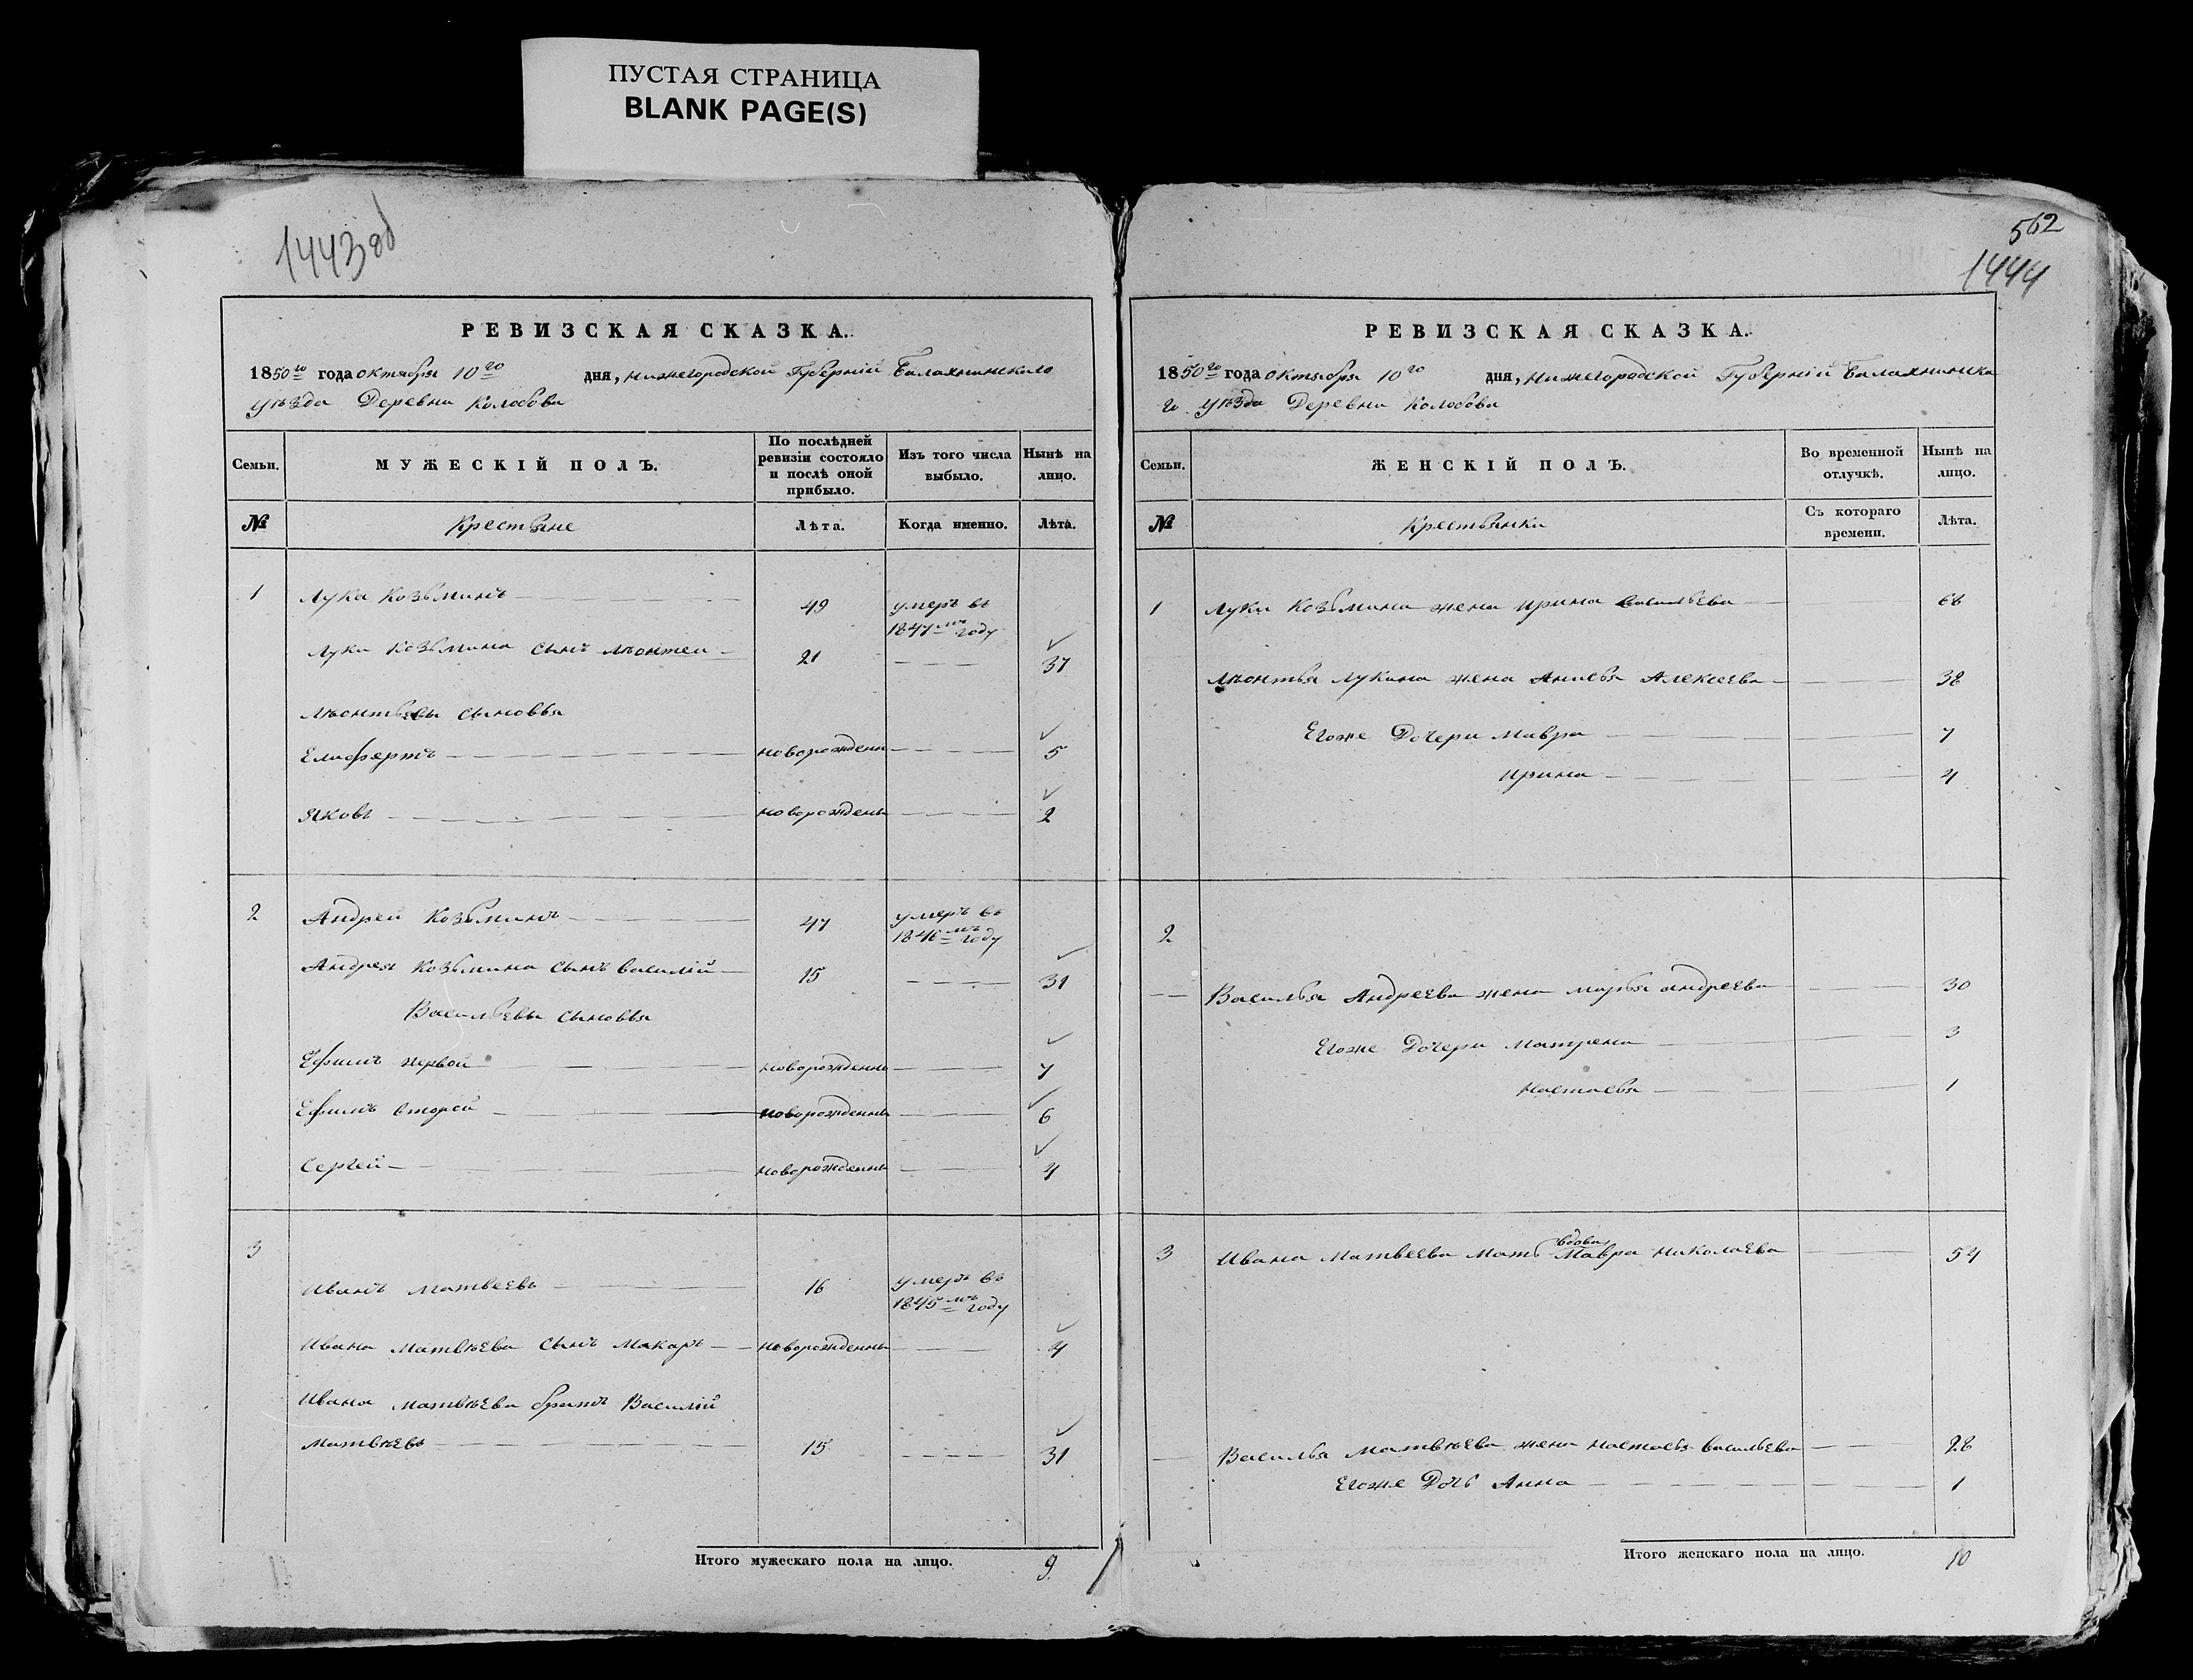 ПУСТАЯ СТРАНИЦА
BLANK PAGE(S)
1443 об
РЕВИЗСКАЯ СКАЗКА.
1850го года октября 10го дня, Нижегородской Губерніи Балахнинскаго
уѣзда Деревни Колобова
Семьи.
МУЖЕСКІЙ ПОЛЪ.
По послѣдней ревизіи состояло и послѣ оной прибыло.
Изъ того числа выбыло.
Нынѣ на лицо.
№ Крестьяне Лѣта. Когда именно. Лѣта.
1 Лука Козьминъ 49 умеръ въ 1847мъ году
Луки Козьмина сынъ Леонтеи 21 37
Леонтьевы сыновья
Елифертъ новорожденн 5
Яковъ новорожденн 2
2 Андреи Козьминъ 47 умеръ въ 1846мъ году
Андрея Козьмина сынъ Василій 15 31
Васильевы сыновья
Ефимъ первой новорожденны 7
Ефимъ второй новорожденны 6
Сергей новорожденны 4
3
Иванъ Матвеевъ 16 умеръ въ 1845мъ году
Ивана Матвѣева сынъ Макаръ новорожденны 4
Ивана Матвѣева братъ Василій
Матвѣевъ 15 31
Итого мужескаго пола на лицо. 9
562
1444
РЕВИЗСКАЯ СКАЗКА.
1850го года октября 10го дня, Нижегородской Губерніи Балахнинска
го уѣзда Деревни Колобова
Семьи.
ЖЕНСКІЙ ПОЛЪ.
Во временной отлучкѣ.
Нынѣ на лицо.
№ Крестьянки Съ котораго времени. Лѣта.
1 Луки Козьмина жена Ирина Васильева 68
Леонтья Лукина жена Анисья Алексеева 38
Егоже Дочери Мавра 7
Ирина 4
2
Василья Андреева жена Марья Андреева 30
Егоже Дочери Матрена 3
Настасья 1
3 Ивана Матвеева Мать вдова Мавра Николаева 54
Василья Матвѣева жена Настасья Васильева 28
Егоже Дочь Анна 1
Итого женскаго пола на лицо. 10